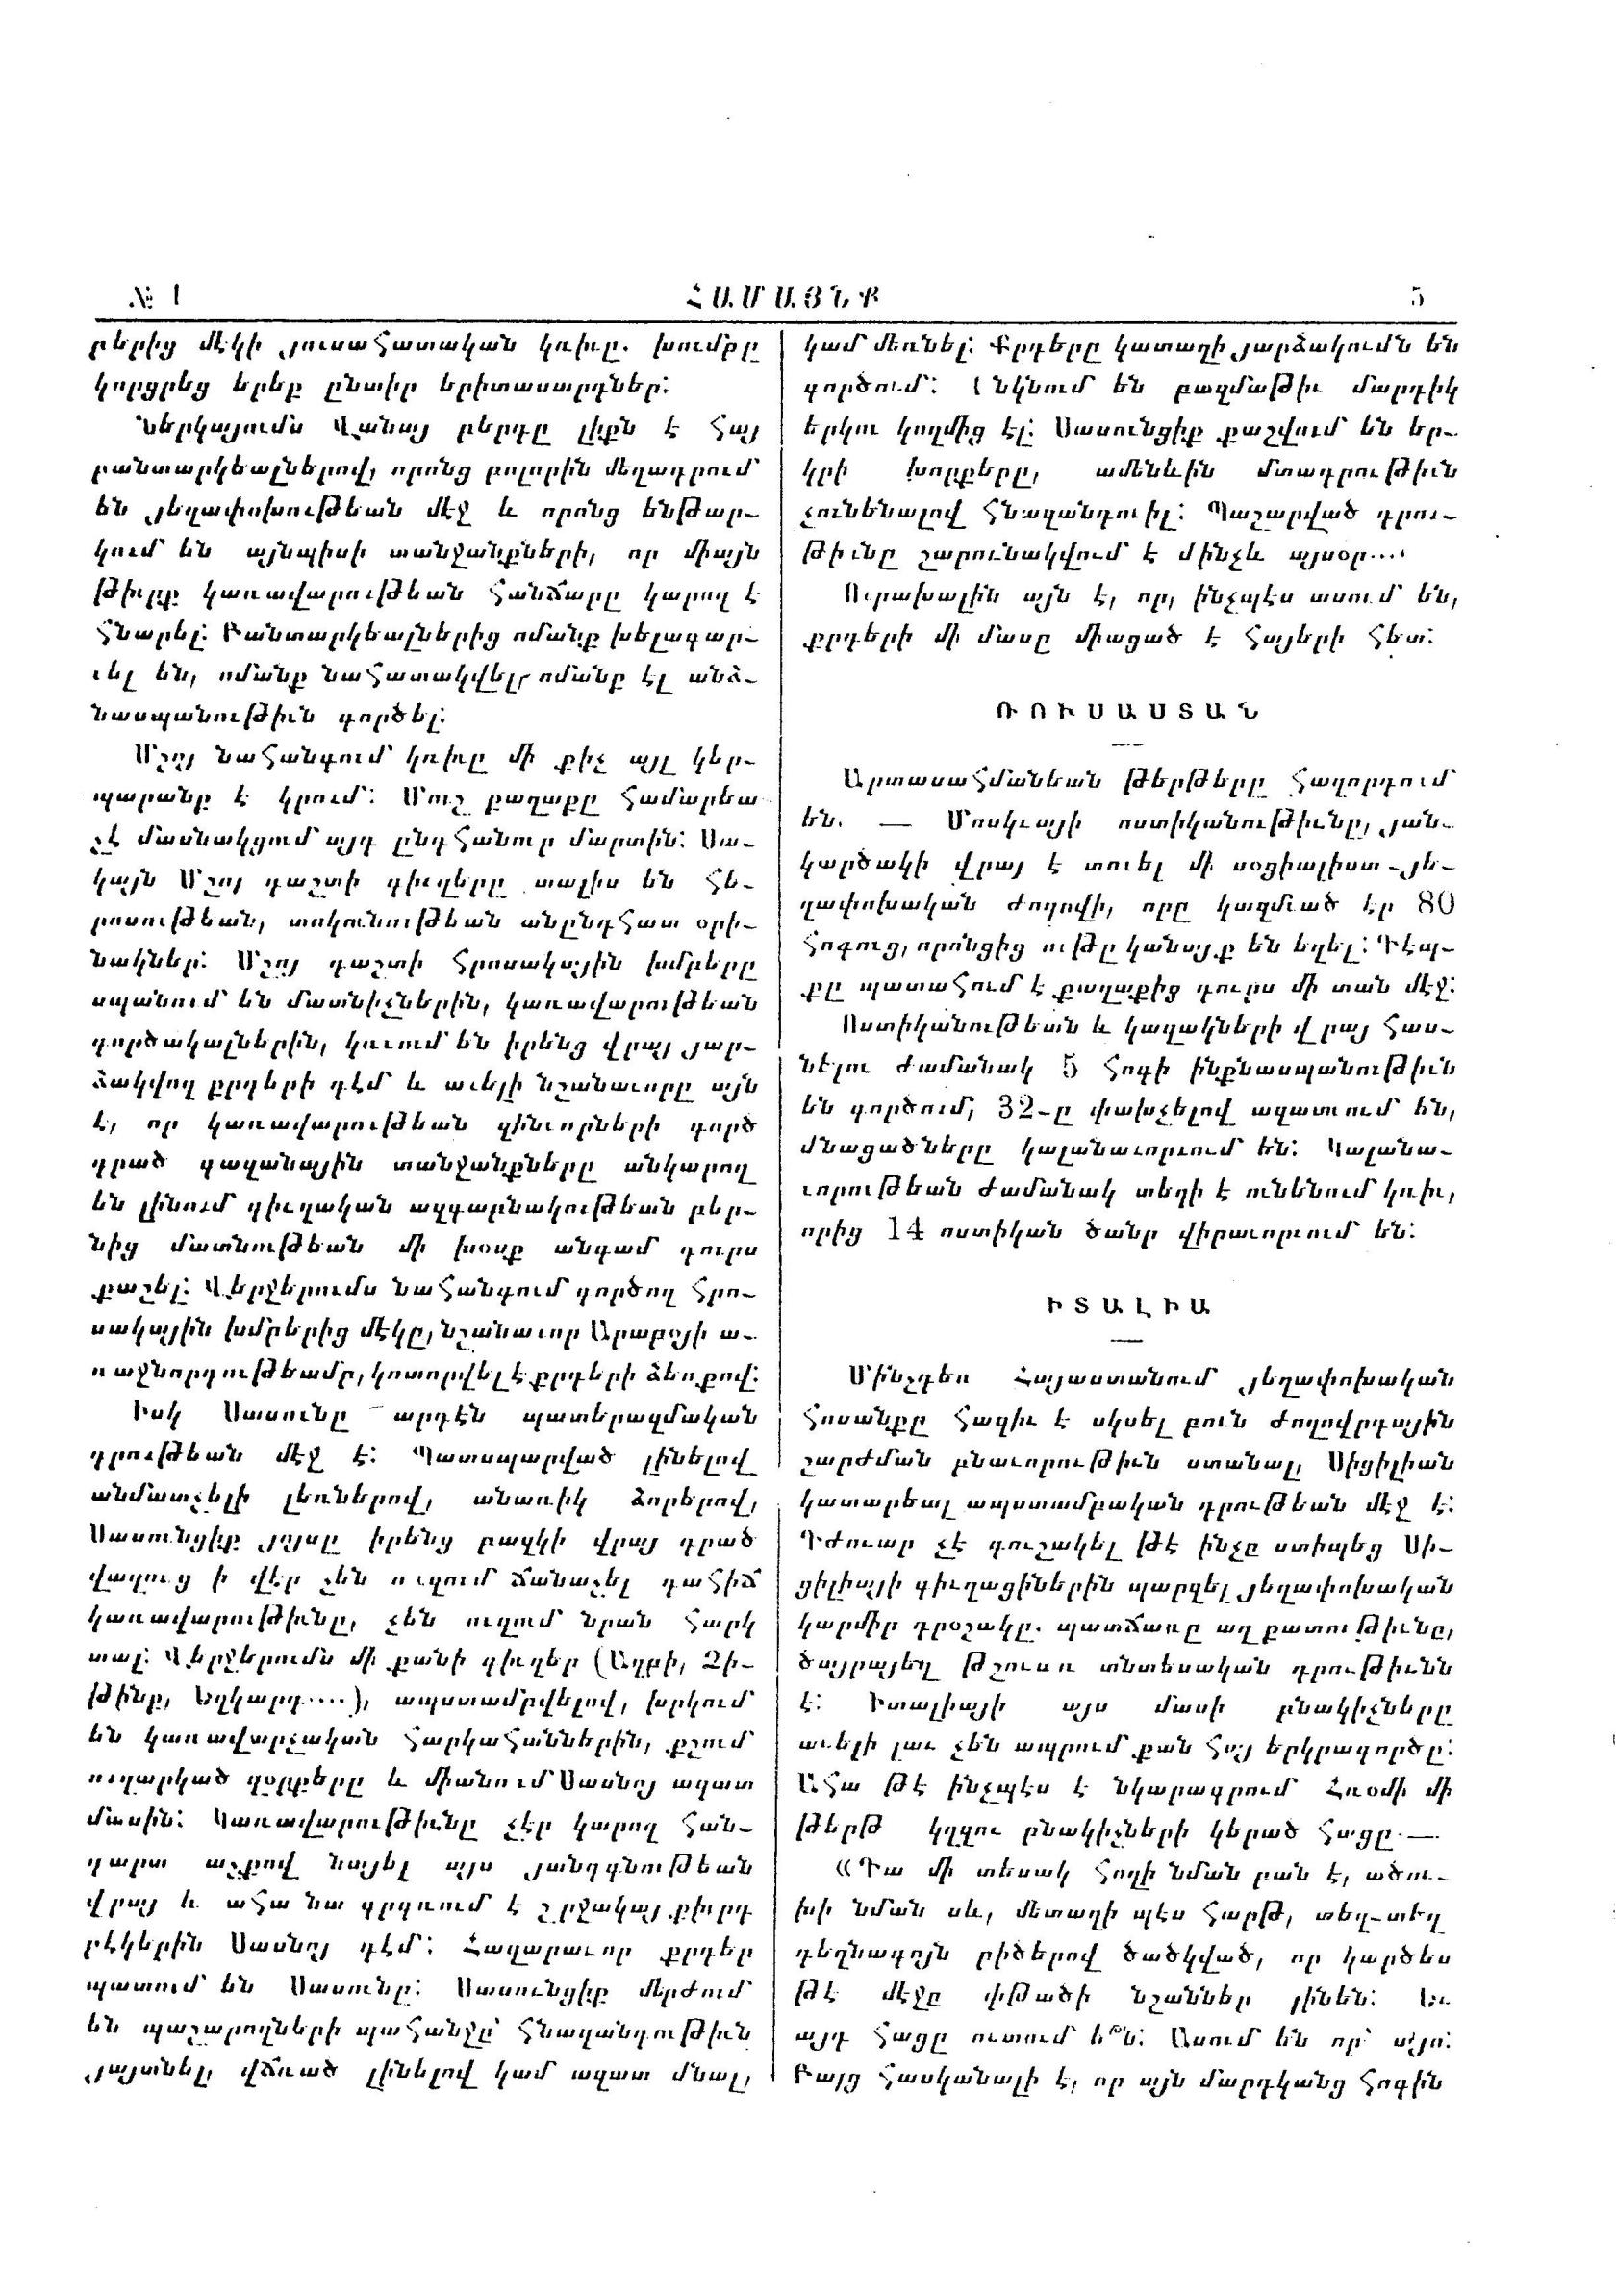 № 1 ՀԱՄԱՅՆՔ 5
բերից մէկի յուսահատական կռիւը. խումբը
կորցրեց երեք ընտիր երիտասարդներ:
Ներկայումս Վանայ բերդը լիքն է հայ
բանտարկեալներով, որոնց բոլորին մեղադրում
են յեղափոխութեան մէջ և որոնց ենթար-
կում են այնպիսի տանջանքների, որ միայն
թիւրք կառավարութեան հանճարը կարող է
հնարել: Բանտարկեալներից ոմանք խելագար-
ւել են, ոմանք նահատակվել, ոմանք էլ անձ-
նասպանութիւն գործել:
Մշոյ նահանգում կռիւը մի քիչ այլ կեր-
պարանք է կրում: Մուշ քաղաքը համարեա
չէ մասնակցում այդ ընդհանուր մարտին: Սա-
կայն Մշոյ դաշտի գիւղերը տալիս են հե-
րոսութեան, տոկունութեան անընդհատ օրի-
նակներ: Մշոյ դաշտի հրոսակային խմբերը
սպանում են մատնիչներին, կառավարութեան
գործակալներին, կռւում են իրենց վրայ յար-
ձակվող քրդերի դէմ և աւելի նշանաւորը այն
է, որ կառավարութեան զինւորների գործ
դրած գազանային տանջանքները անկարող
են լինում գիւղական ազգաբնակութեան բեր-
նից մատնութեան մի խօսք անգամ դուրս
քաշել: Վերջերումս նահանգում գործող հրո-
սակային խմբերից մէկը, նշանաւոր Արաբոյի ա-
ռաջնորդութեամբ, կոտորվել է քրդերի ձեռքով:
Իսկ Սասունը արդէն պատերազմական
դրութեան մէջ է: Պատսպարված լինելով
անմատչելի լեռներով, անառիկ ձորերով,
Սասունցիք յոյսը իրենց բազկի վրայ դրած
վաղուց ի վեր չեն ուզում ճանաչել դահիճ
կառավարութիւնը, չեն ուզում նրան հարկ
տալ: Վերջերումս մի քանի գիւղեր (Աղբի, Զի-
թինք, Եղկարդ....), ապստամբվելով, խրկում
են կառավարչական հարկահաններին, քշում
ուղարկած զօրքերը և միանում Սասնոյ ազատ
մասին: Կառավարութիւնը չէր կարող հան-
դարտ աչքով նայել այս յանդգնութեան
վրայ և ահա նա գրգռում է շրջակայ քիւրդ
բէկերին Սասնոյ դէմ: Հազարաւոր քրդեր
պատում են Սասունը: Սասունցիք մերժում
են պաշարողների պահանջը՝ հնազանդութիւն
յայտնել, վճռած լինելով կամ ազատ մնալ,
կամ մեռնել: Քրդերը կատաղի յարձակումն են
գործում: Ընկնում են բազմաթիւ մարդիկ
երկու կողմից էլ: Սասունցիք քաշվում են եր-
կրի խորքերը, ամենևին մտադրութիւն
չունենալով հնազանդուիլ: Պաշարված դրու-
թիւնը շարունակվում է մինչև այսօր....
Ուրախալին այն է, որ, ինչպէս ասում են,
քրդերի մի մասը միացած է հայերի հետ:
ՌՈՒՍԱՍՏԱՆ
Արտասահմանեան թերթերը հաղորդում
են. — Մոսկւայի ոստիկանութիւնը, յան-
կարծակի վրայ է տուել մի սօցիալիստ-յե-
ղափոխական ժողովի, որը կազմւած էր 80
հոգուց, որոնցից ութը կանայք են եղել: Դէպ-
քը պատահում է քաղաքից դուրս մի տան մէջ:
Ոստիկանութեան և կազակների վրայ հաս-
նէլու ժամանակ 5 հոգի ինքնասպանութիւն
են գործում, 32-ը փախչելով ազատւում են,
մնացածները կալանաւորւում են: Կալանա-
ւորութեան ժամանակ տեղի է ունենում կռիւ,
որից 14 ոստիկան ծանր վիրաւորւում են:
ԻՏԱԼԻԱ
Մինչդեռ Հայաստանում յեղափոխական
հոսանքը հազիւ է սկսել բուն ժողովրդային
շարժման բնաւորութիւն ստանալ, Սիցիլիան
կատարեալ ապստամբական դրութեան մէջ է:
Դժուար չէ գուշակել թէ ինչը ստիպեց Սի-
ցիլիայի գիւղացիներին պարզել յեղափոխական
կարմիր դրօշակը. պատճառը աղքատութիւնը,
ծայրայեղ թշուառ տնտեսական դրութիւնն
է: Իտալիայի այս մասի բնակիչները
աւելի լաւ չեն ապրում քան հայ երկրագործը:
Ահա թէ ինչպէս է նկարագրում Հռօմի մի
թերթ կղզու բնակիչների կերած հացը.—
«Դա մի տեսակ հողի նման բան է, ածու-
խի նման սև, մետաղի պէս հարթ, տեղ-տեղ
դեղնագոյն բիծերով ծածկված, որ կարծես
թէ մէջը փթածի նշաններ լինեն: Եւ
այդ հացը ուտում ե՞ն: Ասում են որ՝ այո:
Բայց հասկանալի է, որ այն մարդկանց հոգին